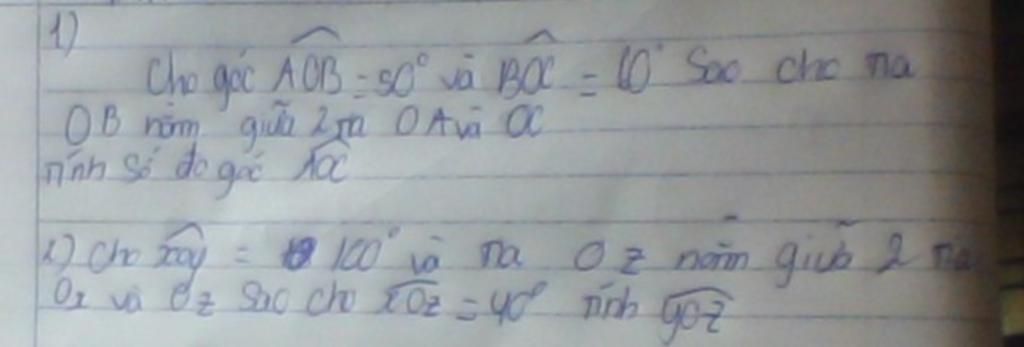 1)
Cho góc AOB = 50° và BOC = 60° Sao cho tia
OB nằm giữa 2 tia OA và OC
Tính số đo góc AOC
2) Cho xoy = 100° và tia Oz nằm giữa 2 tia
Ox và Oz Sao cho xOz = 40° Tính yOz